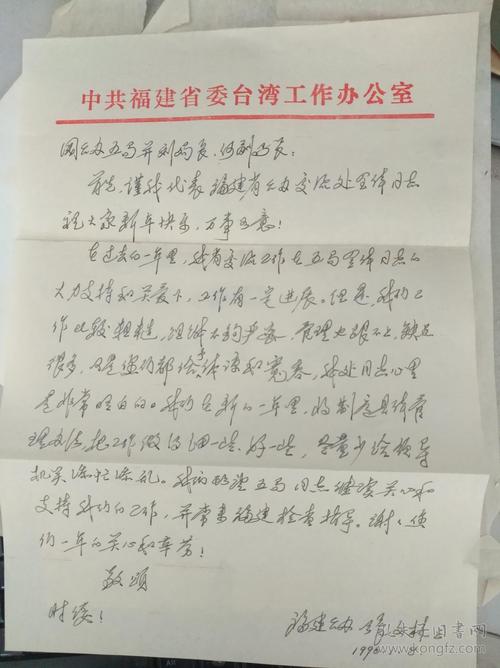 中共福建省委台湾工作办公室
国台办五局并刘局长、何副局长:
首先,谨我代表福建省台办交流处全体同志
祝大家新年快乐,万事如意!
在过去的一年里,我省交流工作在五局全体同志的
大力支持和关爱下,工作有一定进展。但是,我们工
作比较粗糙,组织不够严密,管理也跟不上,缺点
很多,只是你们都给予体谅和宽容,我处同志心里
是非常明白的。我们在新的一年里,将制定具体管
理办法,把工作做得细一些、好一些,尽量少给领导
机关添忙添乱。我们盼望五局同志继续关心和
支持我们的工作,并常来福建检查指导。谢谢你
们一年的关心和辛劳!
敬颂
时绥!
福建台办
199
孔夫子旧书网